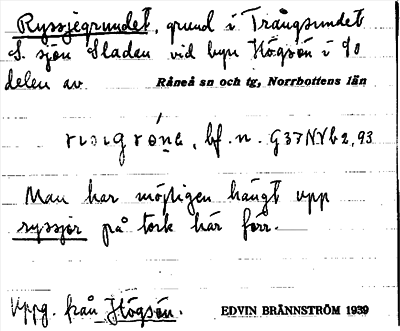 Ryssjegrundet, grund i Trångsundet
S. sjön Sladan vid byn Högsön i Sö
delen av Råneå sn och tg, Norrbottens län
bf. n. G37NVb2,93
Man har möjligen hängt upp
ryssjor på tork här förr.
Uppg. från Högsön. EDVIN BRÄNNSTRÖM 1939